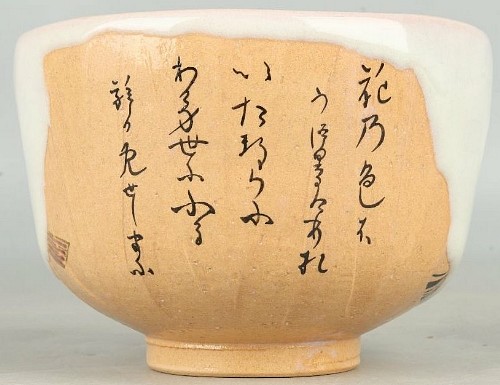 花乃色は
うつりにけりな
いたづらに
わが身世にふる
ながめせしまに